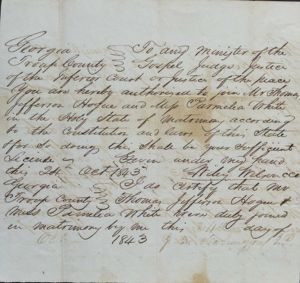 Georgia To any Minister of the
Troup County Gospel Judge Justice
of the Inferior Court or Justice of the peace
You are hereby authorized to join Mr. Thomas
Jefferson Hogue and Miss Parmilia White
in the Holy State of Matrimony according
to the Constitution and laws of this State
for so doing this shall be your sufficient
License Given under my hand
this 24 Oct 1843 Wiley Wilson cco
Georgia I do certify that Mr
Troup County Thomas Jefferson Hogue &
Miss Parmilia White were duly joined
in matrimony by me this day of
1843